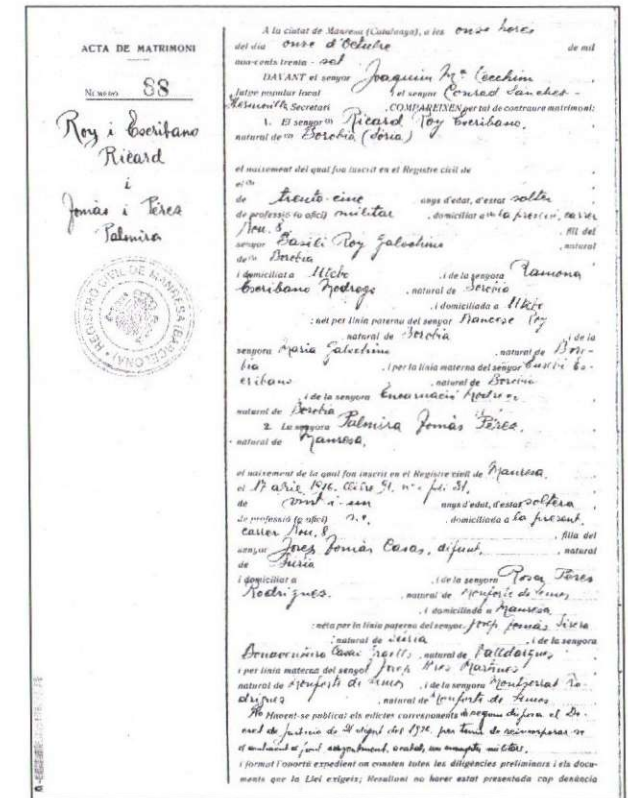 ACTA DE MATRIMONI
Número 88
Roy i Escribano
Ricard
i
Tomàs i Pérez
Palmira
REGISTRO CIVIL DE MANRESA (BARCELONA)
A la ciutat de Manresa (Catalunya), a les onze hores
del dia onze d'Octubre de mil
nou-cents trenta - set
DAVANT el senyor Joaquim Mª Cecchim
Jutge popular local i el senyor Conrad Sanchez-
Hermosilla Secretari , COMPAREIXEN per tal de contraure matrimoni:
1. El senyor Ricard Roy Escribano,
natural de Borobia (Sòria)
el naixement del qual fou inscrit en el Registre civil de
el
de trenta-cinc anys d'edat, d'estat solter
de professió (o ofici) militar , domiciliat a la present, carrer
Nou, 8 , fill del
senyor Basili Roy Galochino , natural
de Borobia
i domiciliat a Utebo i de la senyora Ramona
Escribano , natural de Borobia
, i domiciliada a Utebo
: nét per línia paterna del senyor Roy
, natural de Borobia , i de la
senyora Maria Galochino , natural de Boro-
bia , i per línia materna del senyor Es-
cribano , natural de Borobia
, i de la senyora Encarnació
natural de Borobia
2. La senyora Palmira Tomàs Pérez,
natural de Manresa,
el naixement de la qual fou inscrit en el Registre civil de Manresa,
el 17 abril 1916.
de vint-i-un anys d'edat, d'estat soltera
de professió (o ofici) , domiciliada a la present,
carrer Nou, 8 , filla del
senyor Josep Tomàs Casas, difunt, , natural
de Súria
i domiciliat a , i de la senyora Rosa Peres
Rodríguez. , natural de Monforte de Lemos
, i domiciliada a Manresa
: néta per la línia paterna del senyor Josep Tomàs
, natural de Súria , i de la senyora
Casas , natural de Valldargues
i per línia materna del senyor Josep Pires Martínez
natural de Monforte de Lemos , i de la senyora Montserrat Ro-
dríguez , natural de Monforte de Lemos.
No Havent-se publicat els edictes corresponents segons disposa el De-
cret de Justícia de
i format l'oportú expedient on consten totes les diligències preliminars i els docu-
ments que la Llei exigeix; Resultant no haver estat presentada cap denúncia